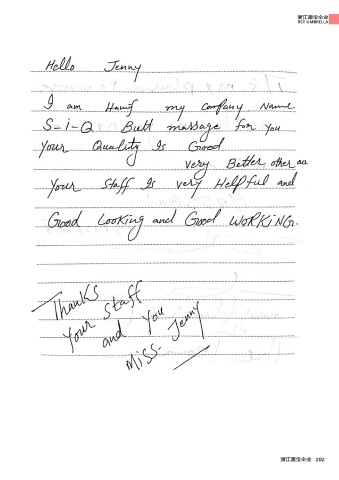 浙江星宝伞业
RST UMBRELLA
Hello Jenny
I am Hanif my Company Name
S-i-Q Butt massage for you
Your Quality Is Good
very Better other
Your Staff Is very Helpful and
Good Looking and Good WORKING.
Thanks
Your Staff
and you
Miss. Jenny
浙江星宝伞业 202